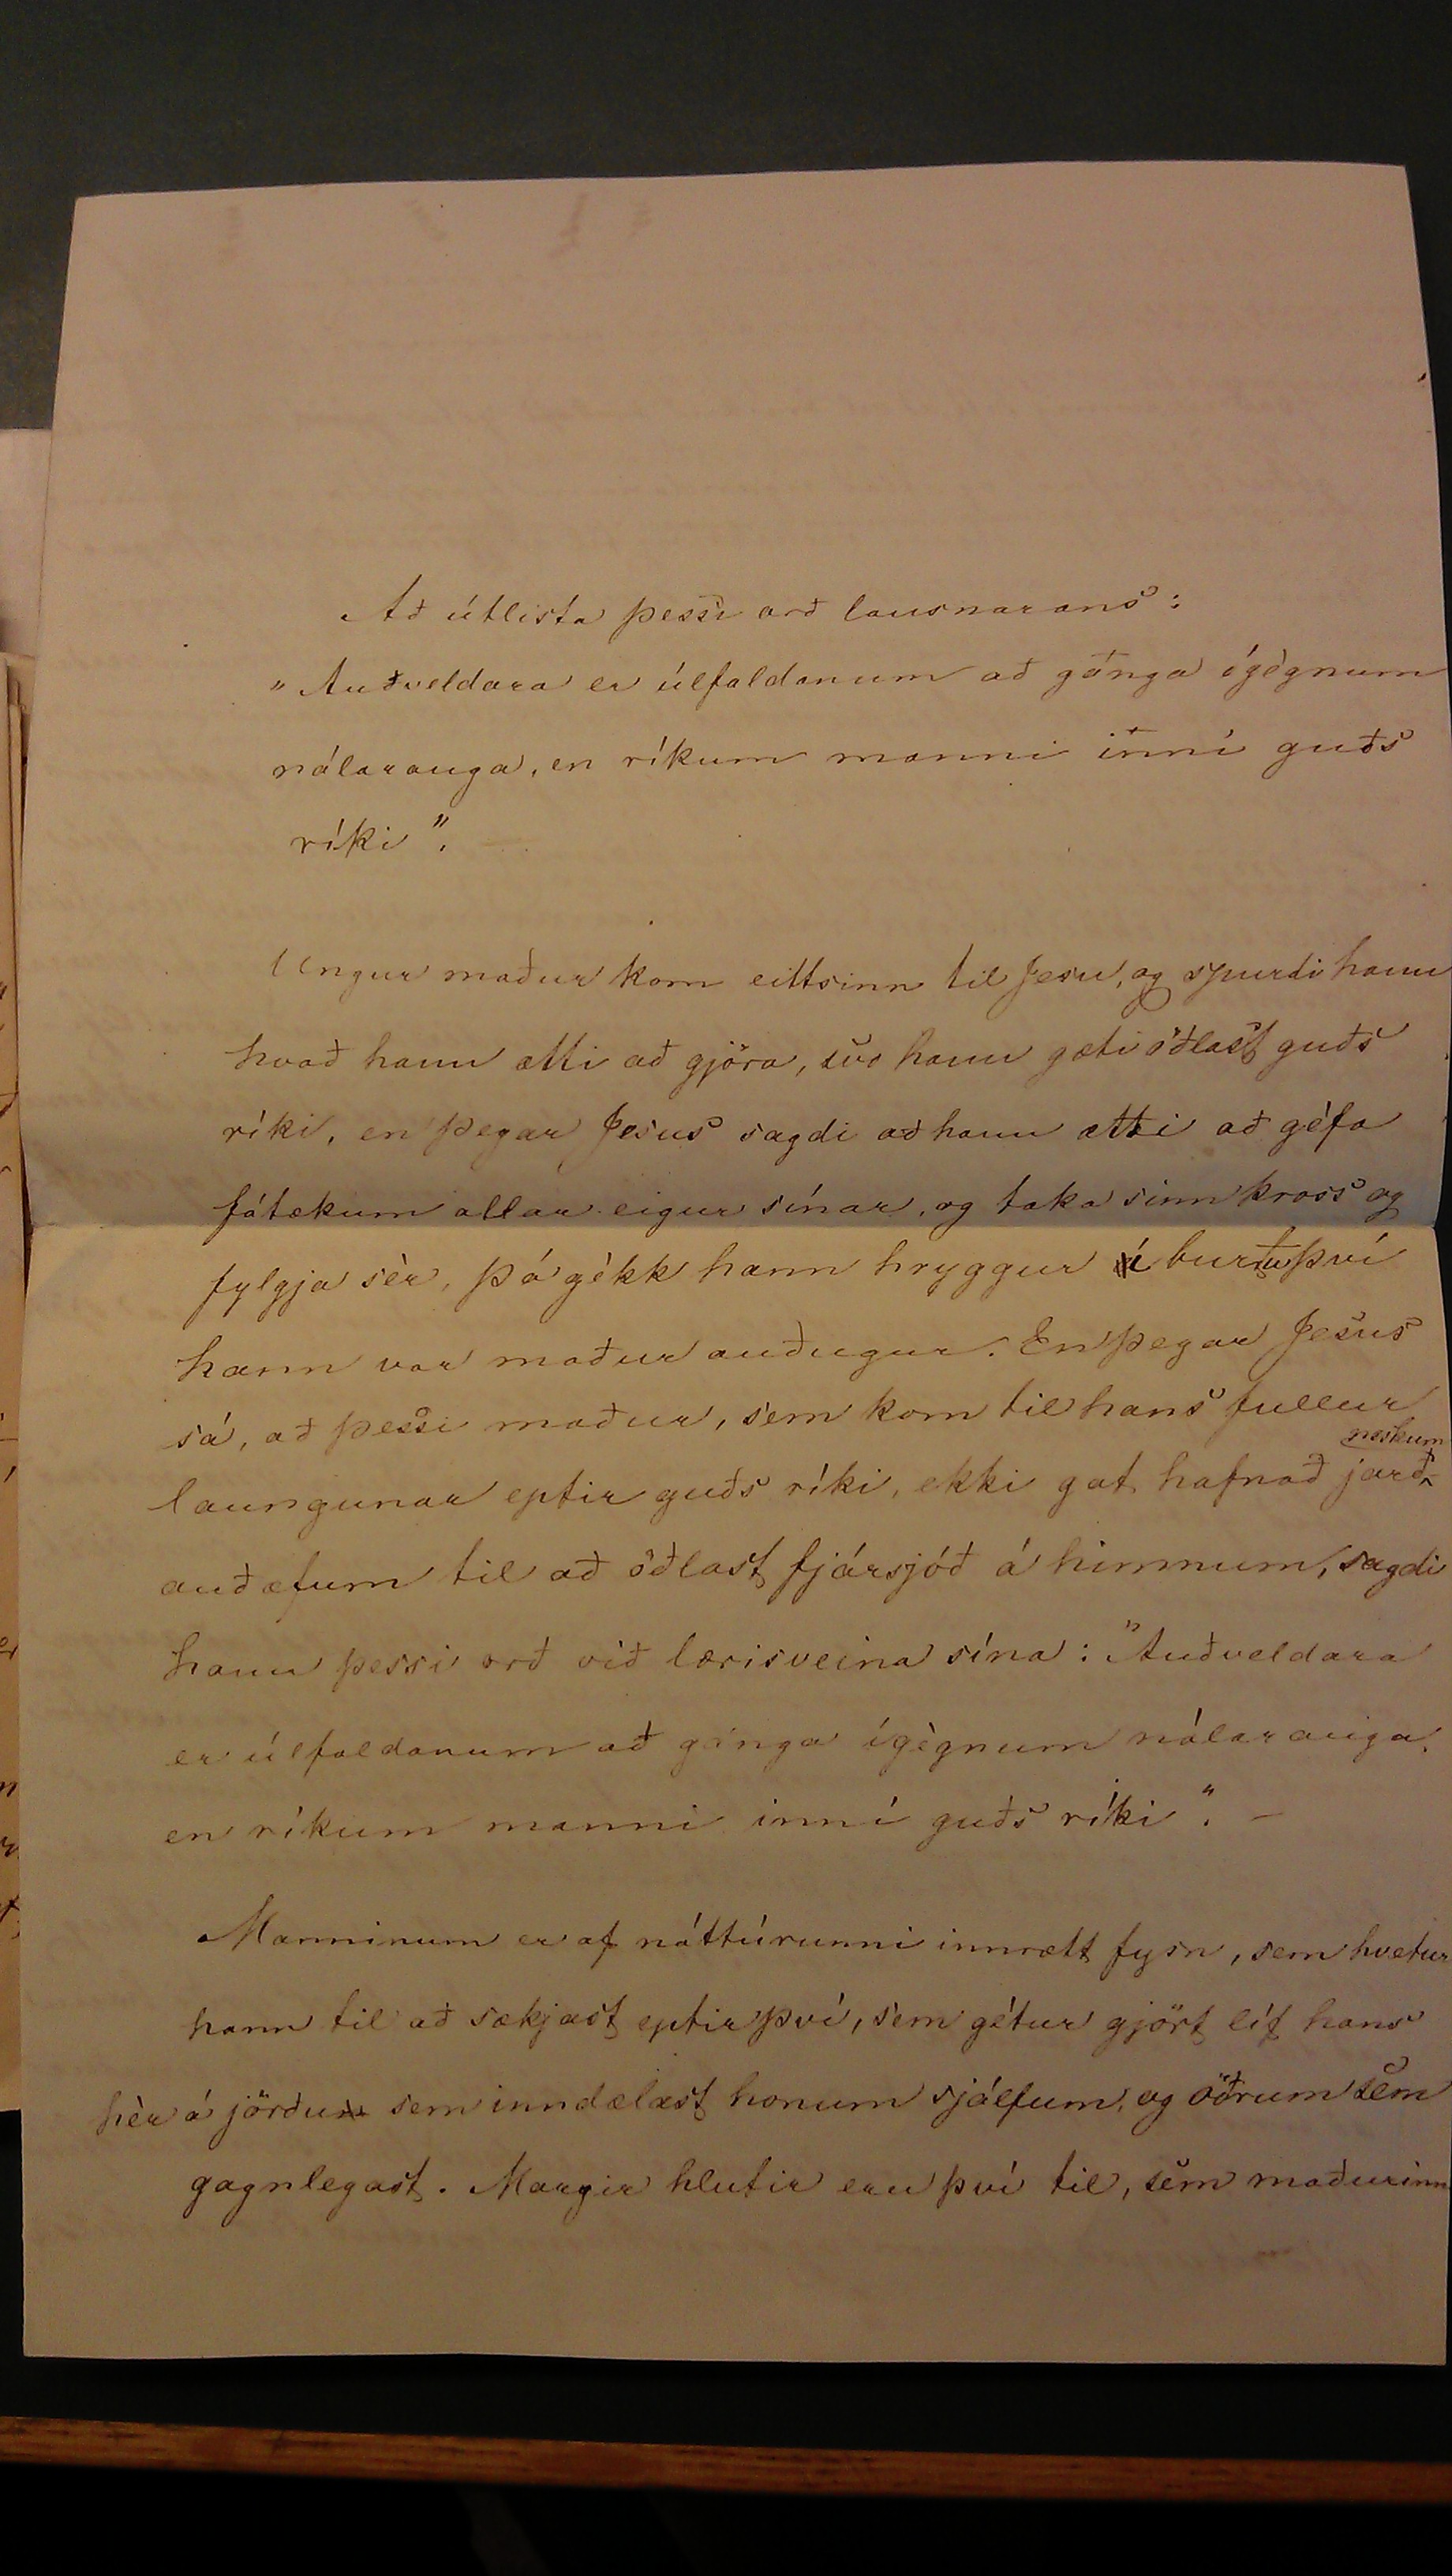 Að útlista þessi orð lausnarans:
„Auðveldara er úlfaldanum að gánga ígègnum
nálarauga, en ríkum manni inní guðs
ríki“.
Ungur maður kom eittsinn til Jesu, og spurdi hann
hvað hann ætti að gjöra, svo hann gæti öðlast guðs
ríki, en þegar Jesus sagdi að hann ætti að gèfa
fátækum allar eigur sínar, og taka sinn kross og
fylgja sèr, þá gèkk hann hryggur í burtu því
hann var maður auðugur. En þegar Jesus
sá, að þessi maður, sem kom til hans fullur
laungunar eptir guðs ríki, ekki gat hafnað jarðneskum
auðæfum til að öðlast fjársjóð á himnum, sagdi
hann þessi orð við lærisveina sína: "Auðveldara
er úlfaldanum að gánga ígègnum nálarauga,
en ríkum manni inní guðs ríki“. –
Manninum er af náttúrunni innrætt fysn, sem hvetur
hann til að sækjast eptir því, sem gètur gjört líf hans
hèr á jörðu sem inndælast honum sjálfum, og öðrum sem
gagnlegast. Margir hlutir eru því til, sem maðurinn